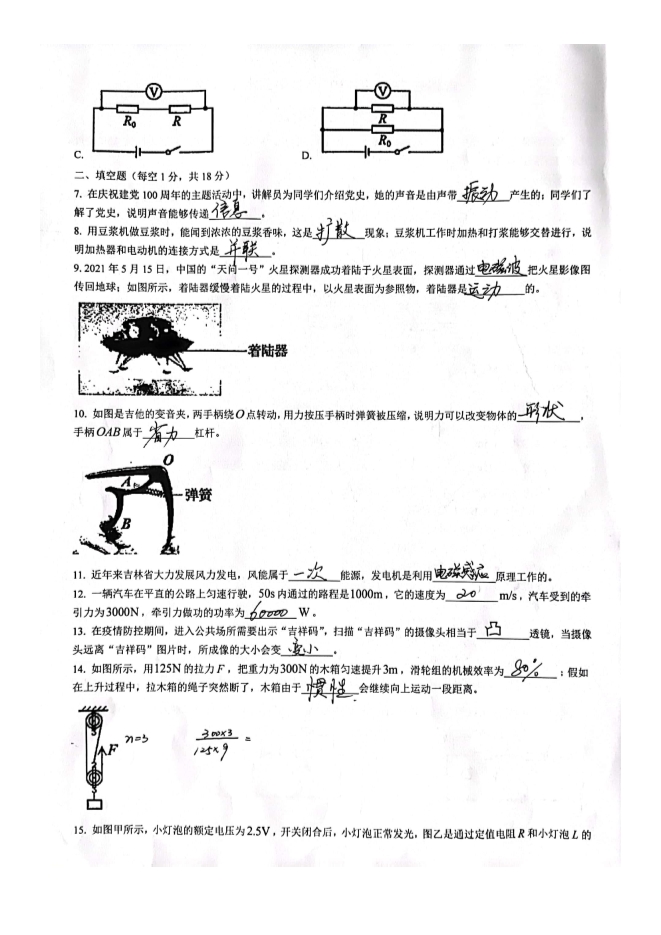 V
V
R₀
R
R
R₀
C.
D.
二、填空题（每空 1 分，共 18 分）
7. 在庆祝建党 100 周年的主题活动中，讲解员为同学们介绍党史，她的声音是由声带 振动 产生的；同学们了
解了党史，说明声音能够传递 信息 。
8. 用豆浆机做豆浆时，能闻到浓浓的豆浆香味，这是 扩散 现象；豆浆机工作时加热和打浆能够交替进行，说
明加热器和电动机的连接方式是 并联 。
9. 2021 年 5 月 15 日，中国的“天问一号”火星探测器成功着陆于火星表面，探测器通过 电磁波 把火星影像图
传回地球；如图所示，着陆器缓慢着陆火星的过程中，以火星表面为参照物，着陆器是 运动 的。
着陆器
10. 如图是吉他的变音夹，两手柄绕O点转动，用力按压手柄时弹簧被压缩，说明力可以改变物体的 形状 ，
手柄OAB属于 省力 杠杆。
O
A
弹簧
B
11. 近年来吉林省大力发展风力发电，风能属于 一次 能源，发电机是利用 电磁感应 原理工作的。
12. 一辆汽车在平直的公路上匀速行驶，50s内通过的路程是1000m，它的速度为 20 m/s，汽车受到的牵
引力为3000N，牵引力做功的功率为 60000 W。
13. 在疫情防控期间，进入公共场所需要出示“吉祥码”，扫描“吉祥码”的摄像头相当于 凸 透镜，当摄像
头远离“吉祥码”图片时，所成像的大小会变 变小 。
14. 如图所示，用125N的拉力F，把重力为300N的木箱匀速提升3m，滑轮组的机械效率为 80% ；假如
在上升过程中，拉木箱的绳子突然断了，木箱由于 惯性 会继续向上运动一段距离。
F
n=3
300×3
125×9
=
15. 如图甲所示，小灯泡的额定电压为2.5V，开关闭合后，小灯泡正常发光，图乙是通过定值电阻R和小灯泡L的